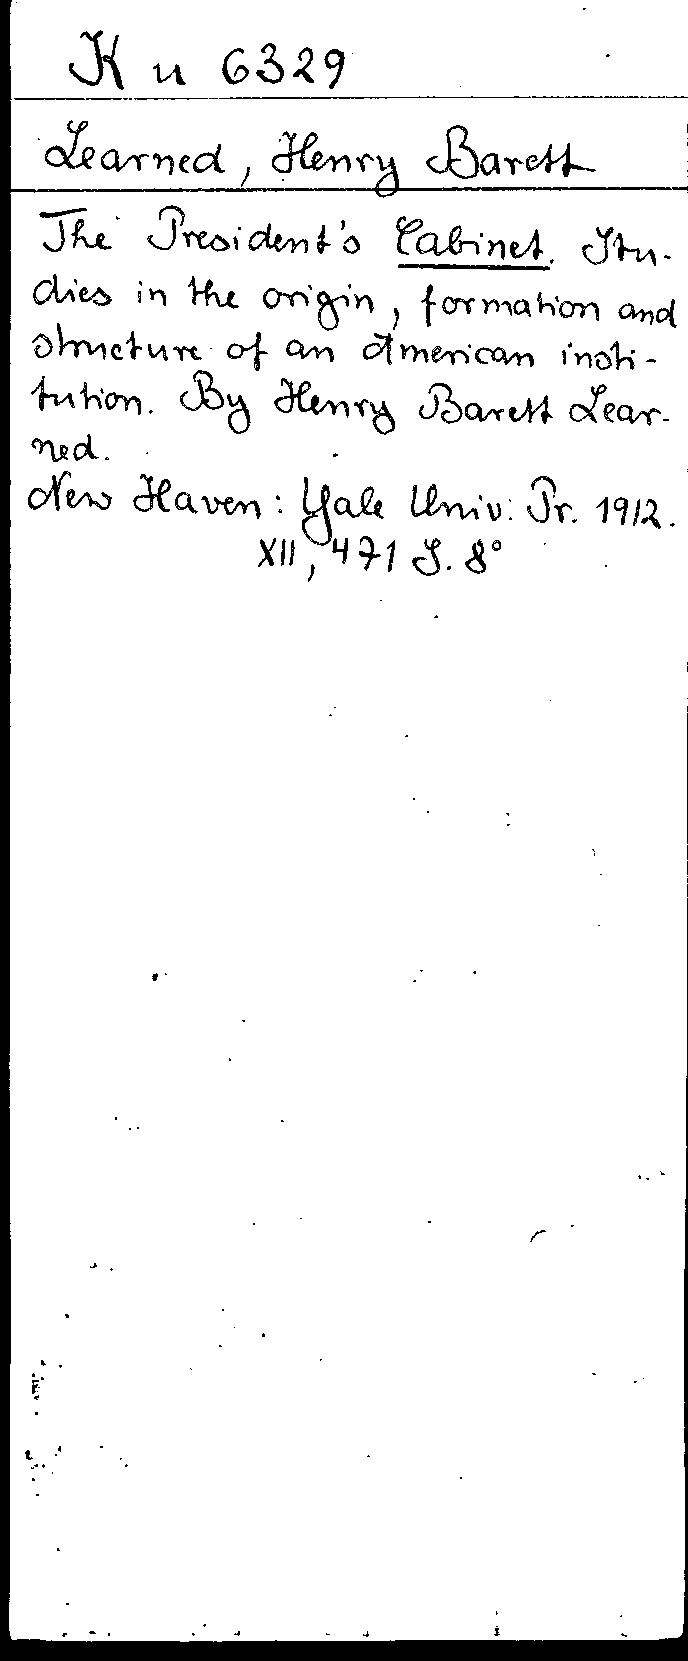 K u 6329
Learned, Henry Barett
The President's Cabinet. Stu-
dies in the origin, formation and
structure of an American insti-
tution. By Henry Barett Lear-
ned.
New Haven: Yale Univ. Pr. 1912.
XII, 471 S. 8°